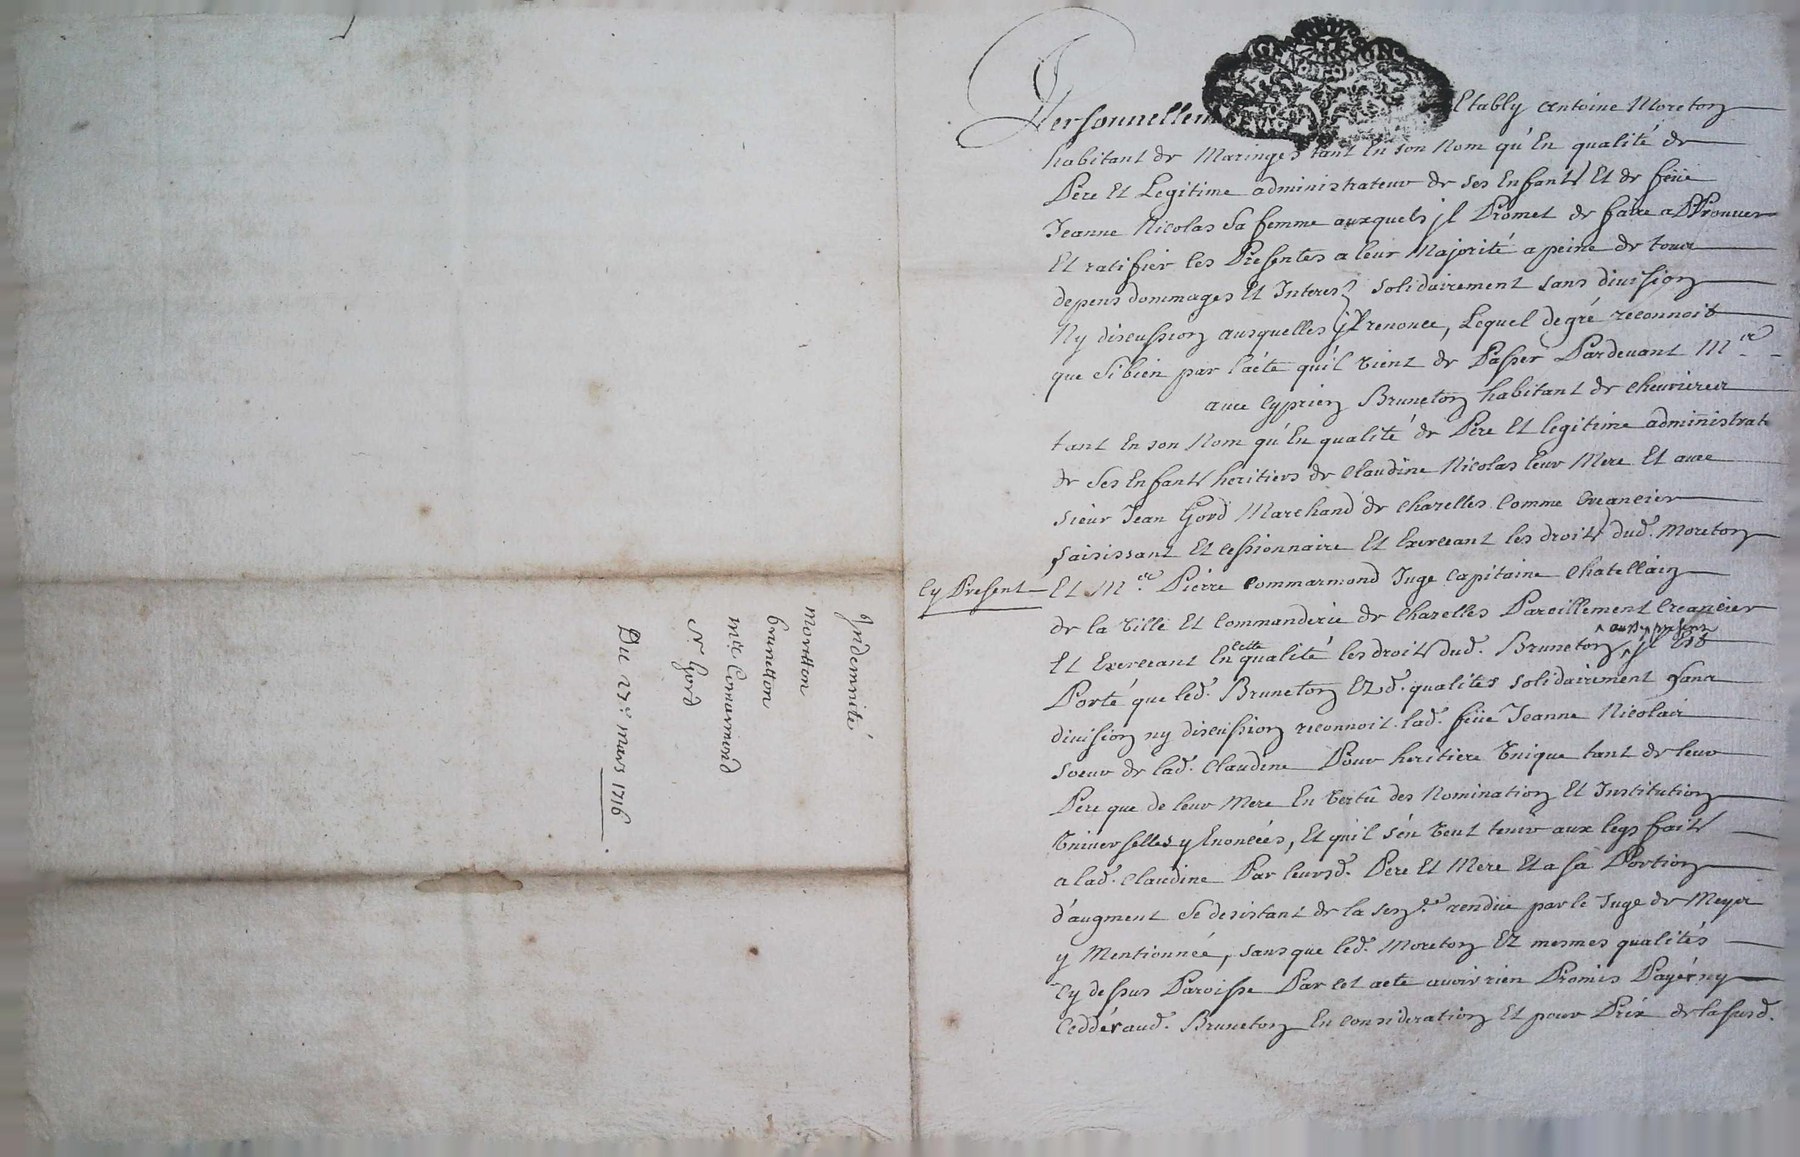 Indemnité
moretton
brunetton
mre Comarmond
Sr Gord
Du 27e mars 1716
Personnellem Etably Antoine Moreton
habitant de Maringes tant En son Nom qu'En qualité de
Pere Et Legitime administrateur de ses Enfants Et de feüe
Jeanne Nicolas Sa femme auxquels jl Promet de faire aPProuver
Et ratifier les Presentes a leur Majorité a peine de tous
depens dommages Et Interest solidairement sans division
Ny discussion ausquelles jl renonce, Lequel de gré reconnoit
que Si bien par l'acte qu'il Vient de Passer Pardevant Mre
avec Cyprien Bruneton habitant de Chevrieres
tant En son Nom qu'En qualité de Pere Et legitime administrat
de ses Enfants heritiers de Claudine Nicolas leur Mere Et avec
sieur Jean Gord Marchand de Chazelles Comme Creancier
saisissant Et Cessionnaire Et Exerceant les droits dud. Moreton
Cy Present
Et Mre Pierre Commarmond Juge Capitaine Chatellain
de la Ville Et Commanderie de Chazelles Pareillement Creancier
aussy present
Et Exerceant En cette qualité les droits dud. Bruneton jl Est
Porté que led. Bruneton Ezd. qualités solidairement sans
division ny discussion reconnoit lad. feüe Jeanne Nicolas
soeur de lad. Claudine Pour heritiere Unique tant de leur
Pere que de leur Mere En Vertu des Nomination Et Institution
Universelles y Enoncées, Et qu'il s'en Veut tenir aux legs faits
a lad. Claudine Par leursd. Pere Et Mere Et a sa Portion
d'augment Se desistant de la sence rendüe par le Juge de Meys
y Mentionnée, sans que led. Moreton Ez mesmes qualités
Cy dessus Paroisse Par cet acte avoir rien Promis Payér ny
Ceddér aud. Bruneton En Consideration Et pour Prix de la susd.